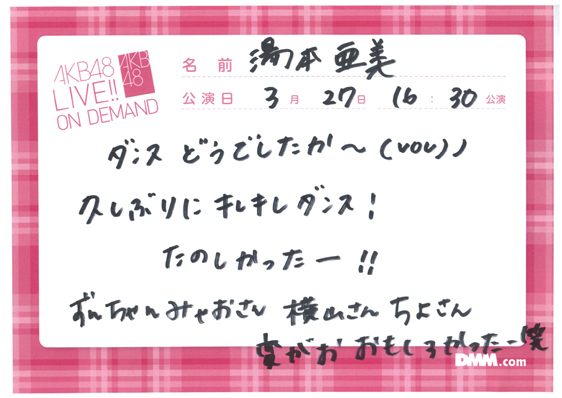 AKB48
LIVE!!
ON DEMAND
AKB
48
名前 湯本亜美
公演日 3月27日 16:30公演
ダンス どうでしたか〜(vov)ノ
久しぶりに キレキレダンス!
たのしかったー!!
ずんちゃん みゃおさん 横山さん ちよさん
変がお おもしろかったー笑
DMM.com